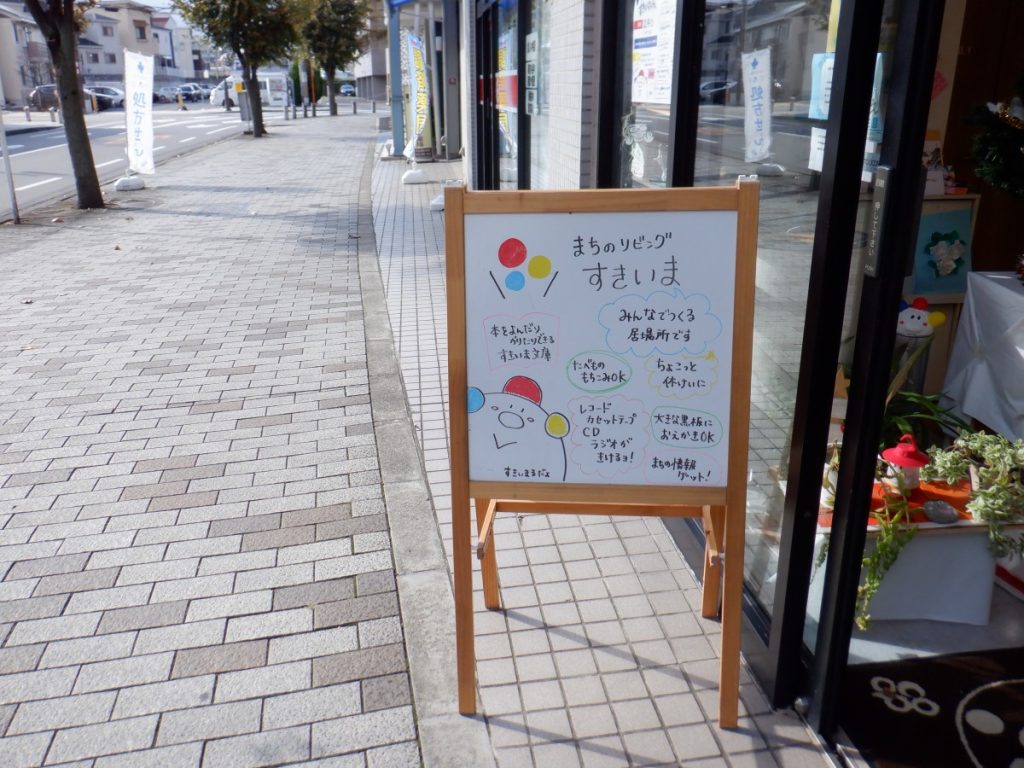 まちのリビング
すきいま
みんなでつくる
居場所です
本をよんだり
かりたりできる
すきいま文庫
たべもの
もちこみOK
ちょこっと
休けいに
レコード
カセットテープ
CD
ラジオが
きけるョ!
大きな黒板に
おえかきOK
まちの情報
ゲット!
すきいまるだよ
処方せん
押してください